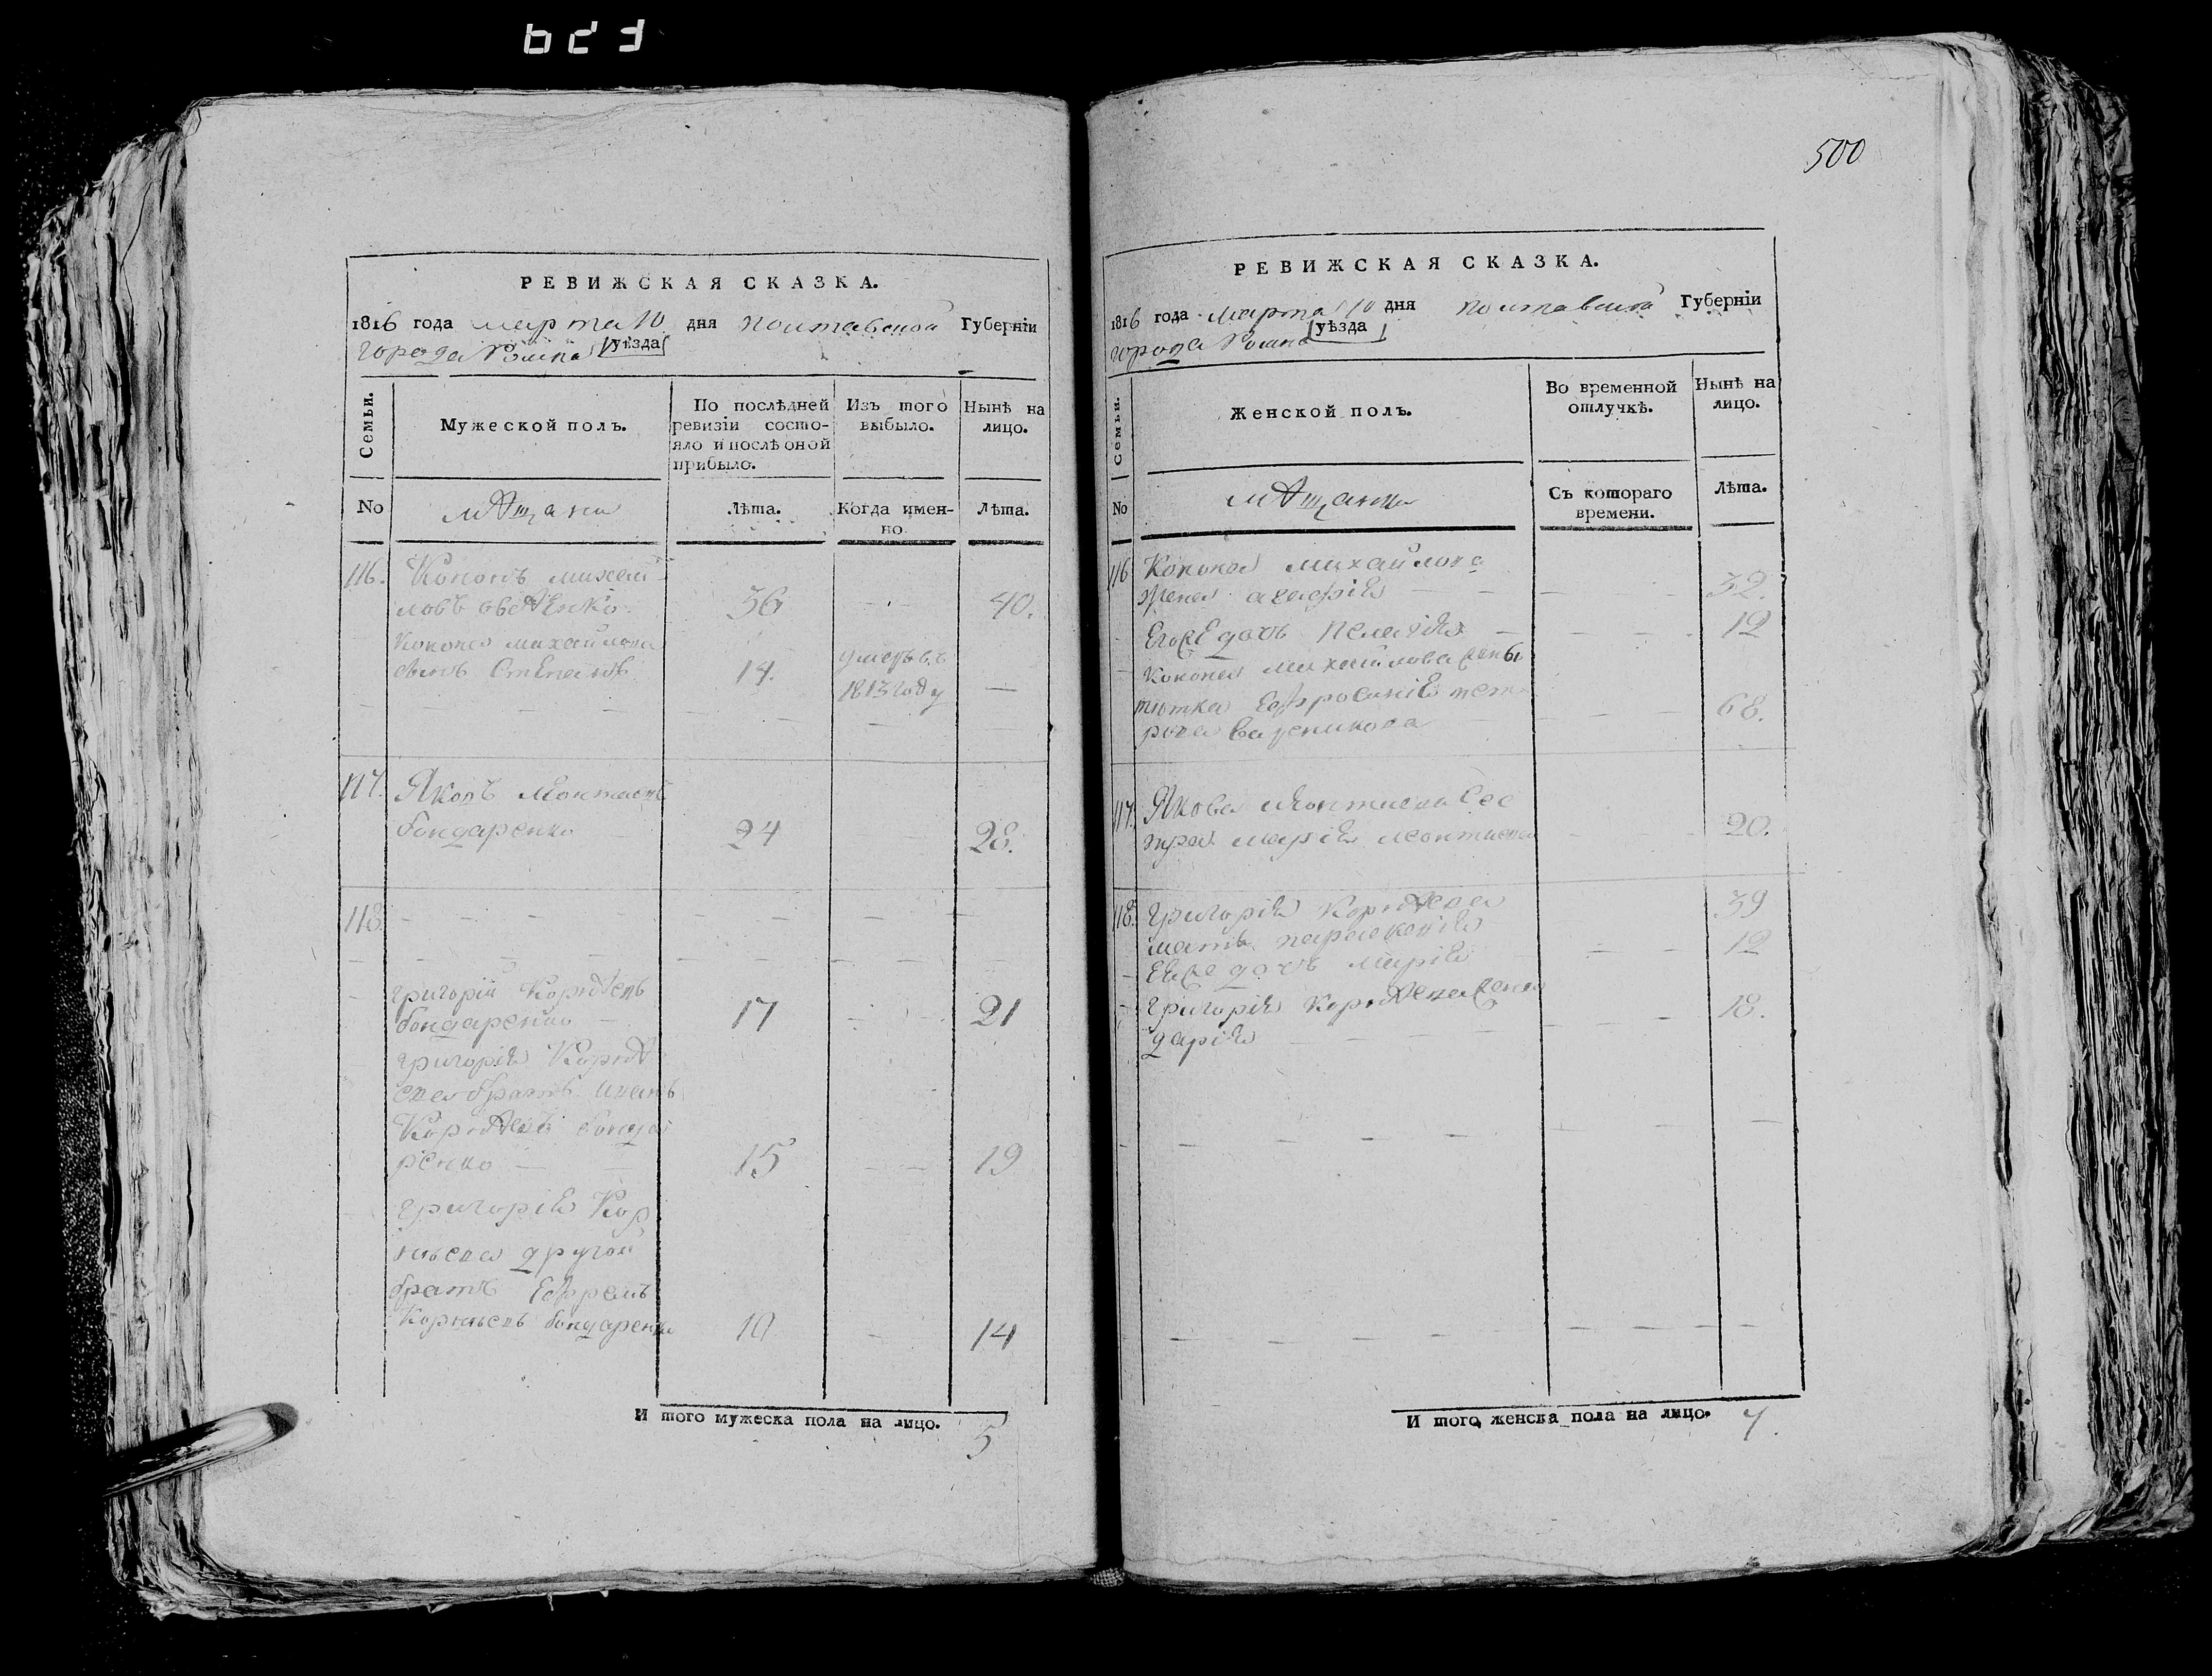 500
РЕВИЖСКАЯ СКАЗКА.
1816 года марта 10 дня полтавской Губерніи
города Ромна уѣзда
Семьи.
Мужеской полъ.
По послѣдней ревизіи состо-
яло и послѣ оной
прибыло.
Изъ того
выбыло.
Нынѣ на
лицо.
No
мѣщани
Лѣта.
Когда имен-
но.
Лѣта.
116. Кононъ михай-
ловъ 36 40.
Конона михайлова
сынъ Степанъ 14. умеръ въ
1813 году —
117. Яковъ леонтиевъ
бондаренко 24 28.
118
григорий Корнѣевъ
бондаренко 17 21
григорія Корнѣ
ева братъ иванъ
Корнѣевъ бонда
ренко 15 19
григорія Кор
ньева другой
братъ Ефремъ
Корньевъ бондаренко 10 14
И того мужеска пола на лицо. 5
РЕВИЖСКАЯ СКАЗКА.
1816 года марта 10 дня полтавской Губерніи
города Ромна уѣзда
Семьи.
Женской полъ.
Во временной
отлучкѣ.
Нынѣ на
лицо.
No
мѣщанки
Съ котораго
времени.
Лѣта.
116 Конона михайлова
жена агафія 32.
Его же дочь Пелагія 12
Конона михайлова жены
тютка Ефросиніа пет
рова 68.
117. Якова леонтиева сес
тра марія леонтиева 20.
118. григорія Корнѣева 39
мать параскевія
Ея же дочь марія 12
григорія Корнѣева жена
дарія 18.
И того женска пола на лицо. 7.